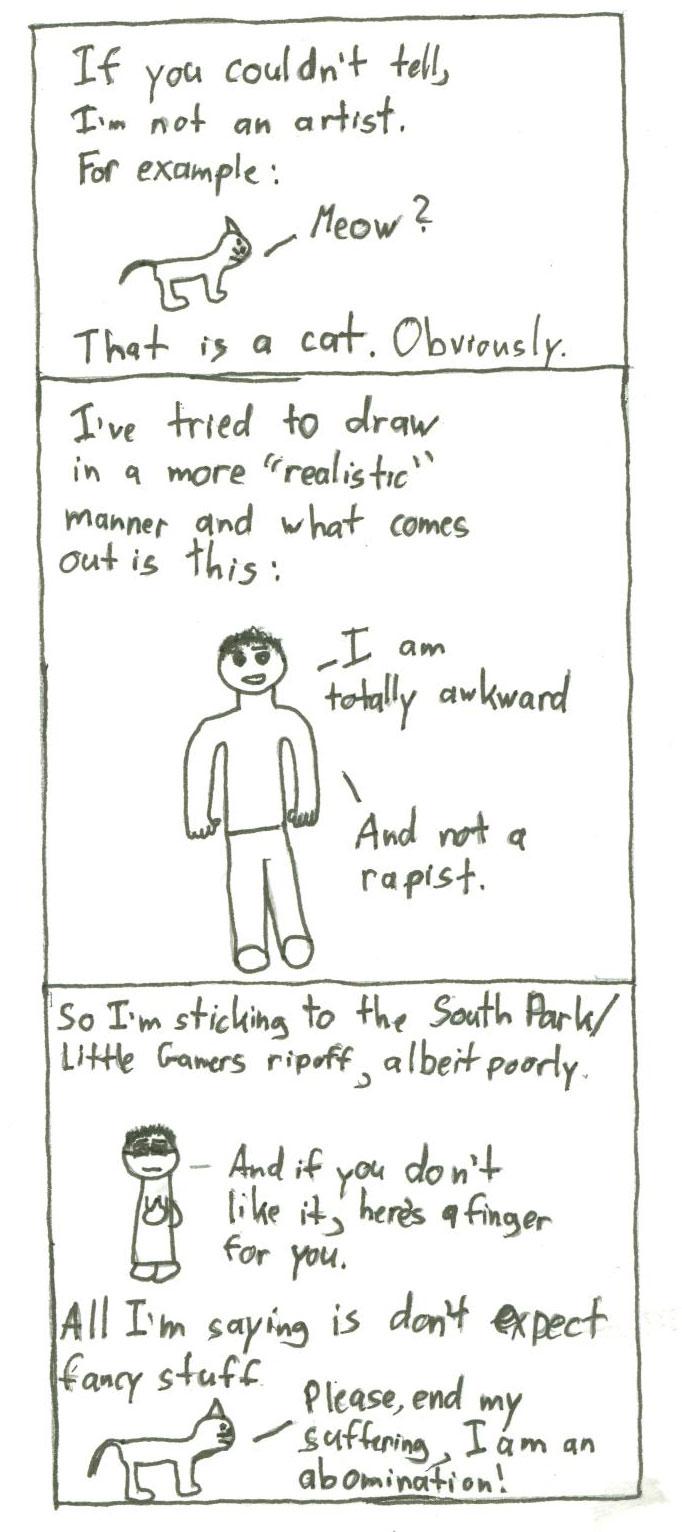 If you couldn't tell,
I'm not an artist.
For example:
Meow?
That is a cat. Obviously.
I've tried to draw
in a more "realistic"
manner and what comes
out is this:
I am
totally awkward
And not a
rapist.
So I'm sticking to the South Park/
Little Gamers ripoff, albeit poorly.
And if you don't
like it, here's a finger
for you.
All I'm saying is don't expect
fancy stuff.
Please, end my
suffering, I am an
abomination!